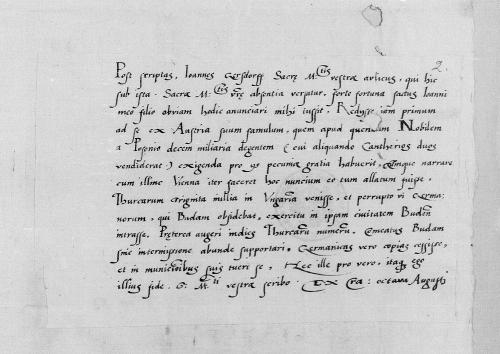 2.
Post scriptas, Ioannes Gersdorff Sacrę M.tis vestrae aulicus, qui hic
sub ista Sacrae M.tis vrę absentia versatur, forte fortuna factus Ioanni
meo filio obviam hodie anunciari mihi iussit. Redysse iam primum
ad se ex Austria suum famulum, quem apud quendam Nobilem
a Posonio decem miliaria degentem (cui aliquando Cantherios duos
vendiderat) exigenda pro ys pecuniae gratia habuerit, Eumque narrare
cum illinc Vienna iter faceret hoc nuncium eo tum allatum fuisse,
Thurcarum triginta millia in Vngariã venisse, et perrupto vi Germa:
norum, qui Budam obsidebat, exercitu in ipsam civitatem Budeñ
intrasse. Pręterea augeri indies Thurcarũ numerũ. Cmeatus Budam
sine intermissione abunde supportari. Germanicas vero copias cessisse,
et in munitiõibus suis tueri se, Hec ille pro vero, itaq ego
illius fide. S. M.ti vestrae scribo. Ex Cra: octava Augusti